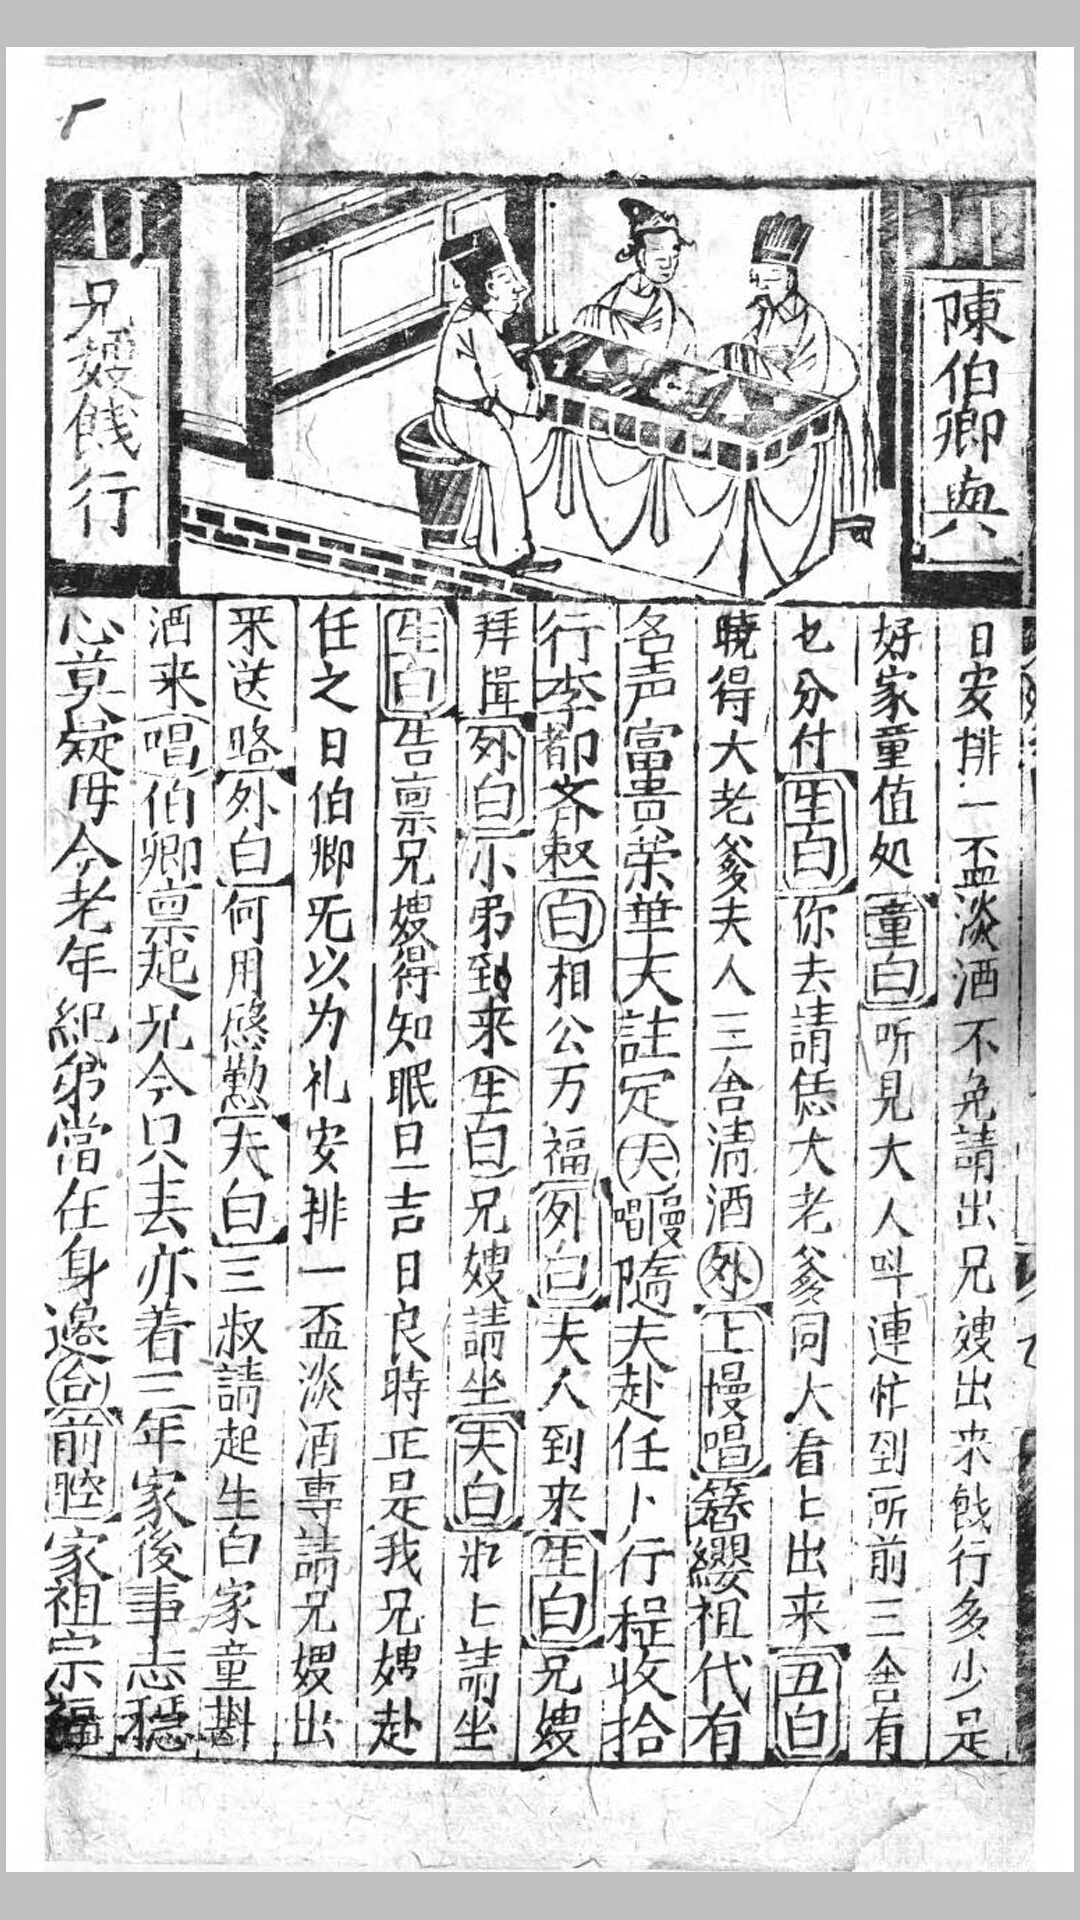 陳伯卿與
兄嫂餞行
日安排一盃淡酒不免請出兄嫂出来餞行多少是
好家童值処童白听見大人呌連忙到所前三舍有
乜分付生白你去請恁大老爹同大看上出来丑白
曉得大老爹夫人三舍清酒外上慢唱簪纓祖代有
名声富贵荣華天註定夫慢唱隨夫赴任卜行程收拾
行李都齐整白相公万福外白夫人到来生白兄嫂
拜揖外白小弟到来生白兄嫂請坐夫白水上請坐
生白告禀兄嫂得知眠旦吉日良時正是我兄嫂赴
任之日伯卿无以为礼安排一盃淡酒專請兄嫂出
来送路外白何用慇懃夫白三叔請起生白家童斟
酒来唱伯卿禀起兄今只去亦着三年家後事志穩
心莫疑母今老年紀弟當在身邊合前腔家祖宗福